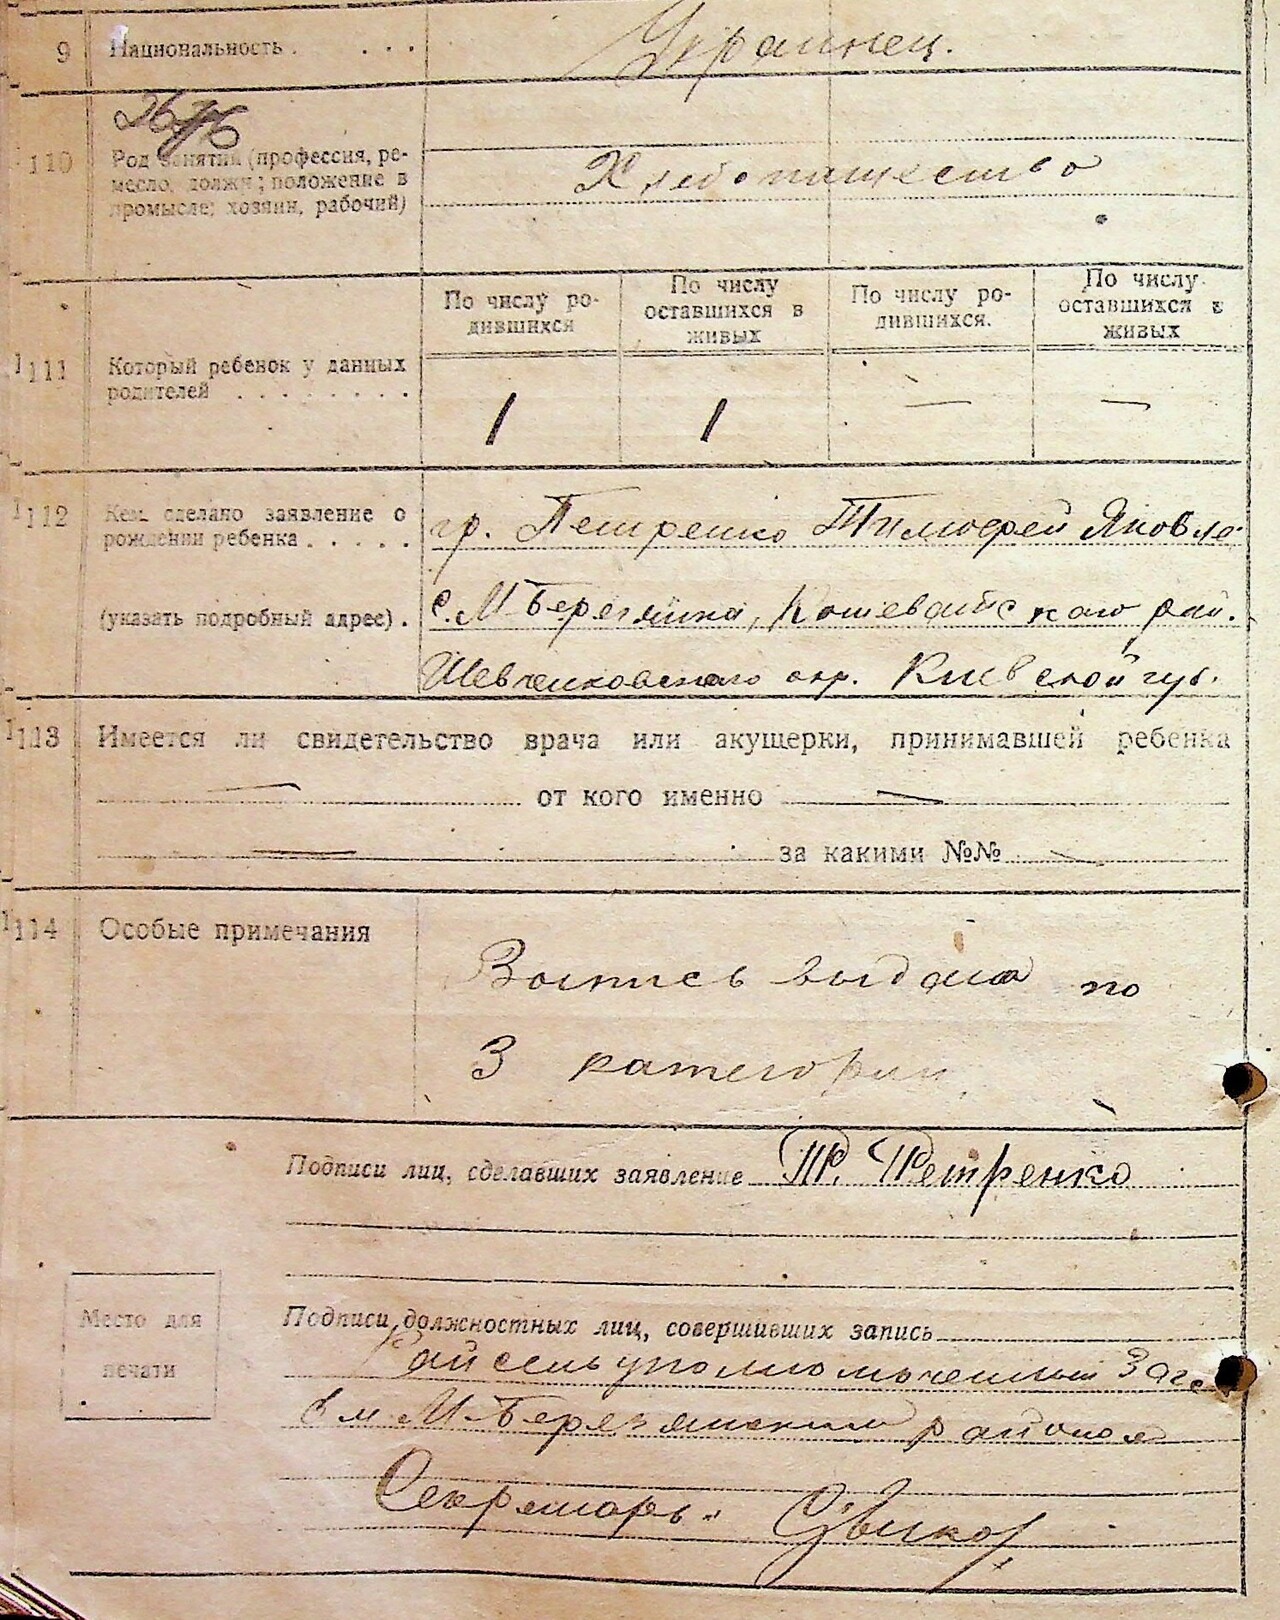 9 Национальность . . . . Украинец.
110 Род занятий (профессия, ре-
месло, должн; положение в
промысле; хозяин, рабочий)
Хлебопашество
По числу ро-
дившихся
По числу
оставшихся в
живых
По числу ро-
дившихся.
По числу
оставшихся в
живых
111 Который ребенок у данных
родителей . . . . . . . .
1 1 — —
112 Кем сделано заявление о
рождении ребенка . . . . .
(указать подробный адрес) .
гр. Петренко Тимофей Яковле
с. М-Березянка, Кошеватского рай.
Шевченковского окр. Киевской губ.
113 Имеется ли свидетельство врача или акушерки, принимавшей ребенка
— от кого именно —
— за какими №№ —
114 Особые примечания
Выпись выдана по
3 категории
Подписи лиц, сделавших заявление Т. Петренко
Место для
печати
Подписи должностных лиц, совершивших запись
уполномоченный Загс
М-Березянским
Секретарь